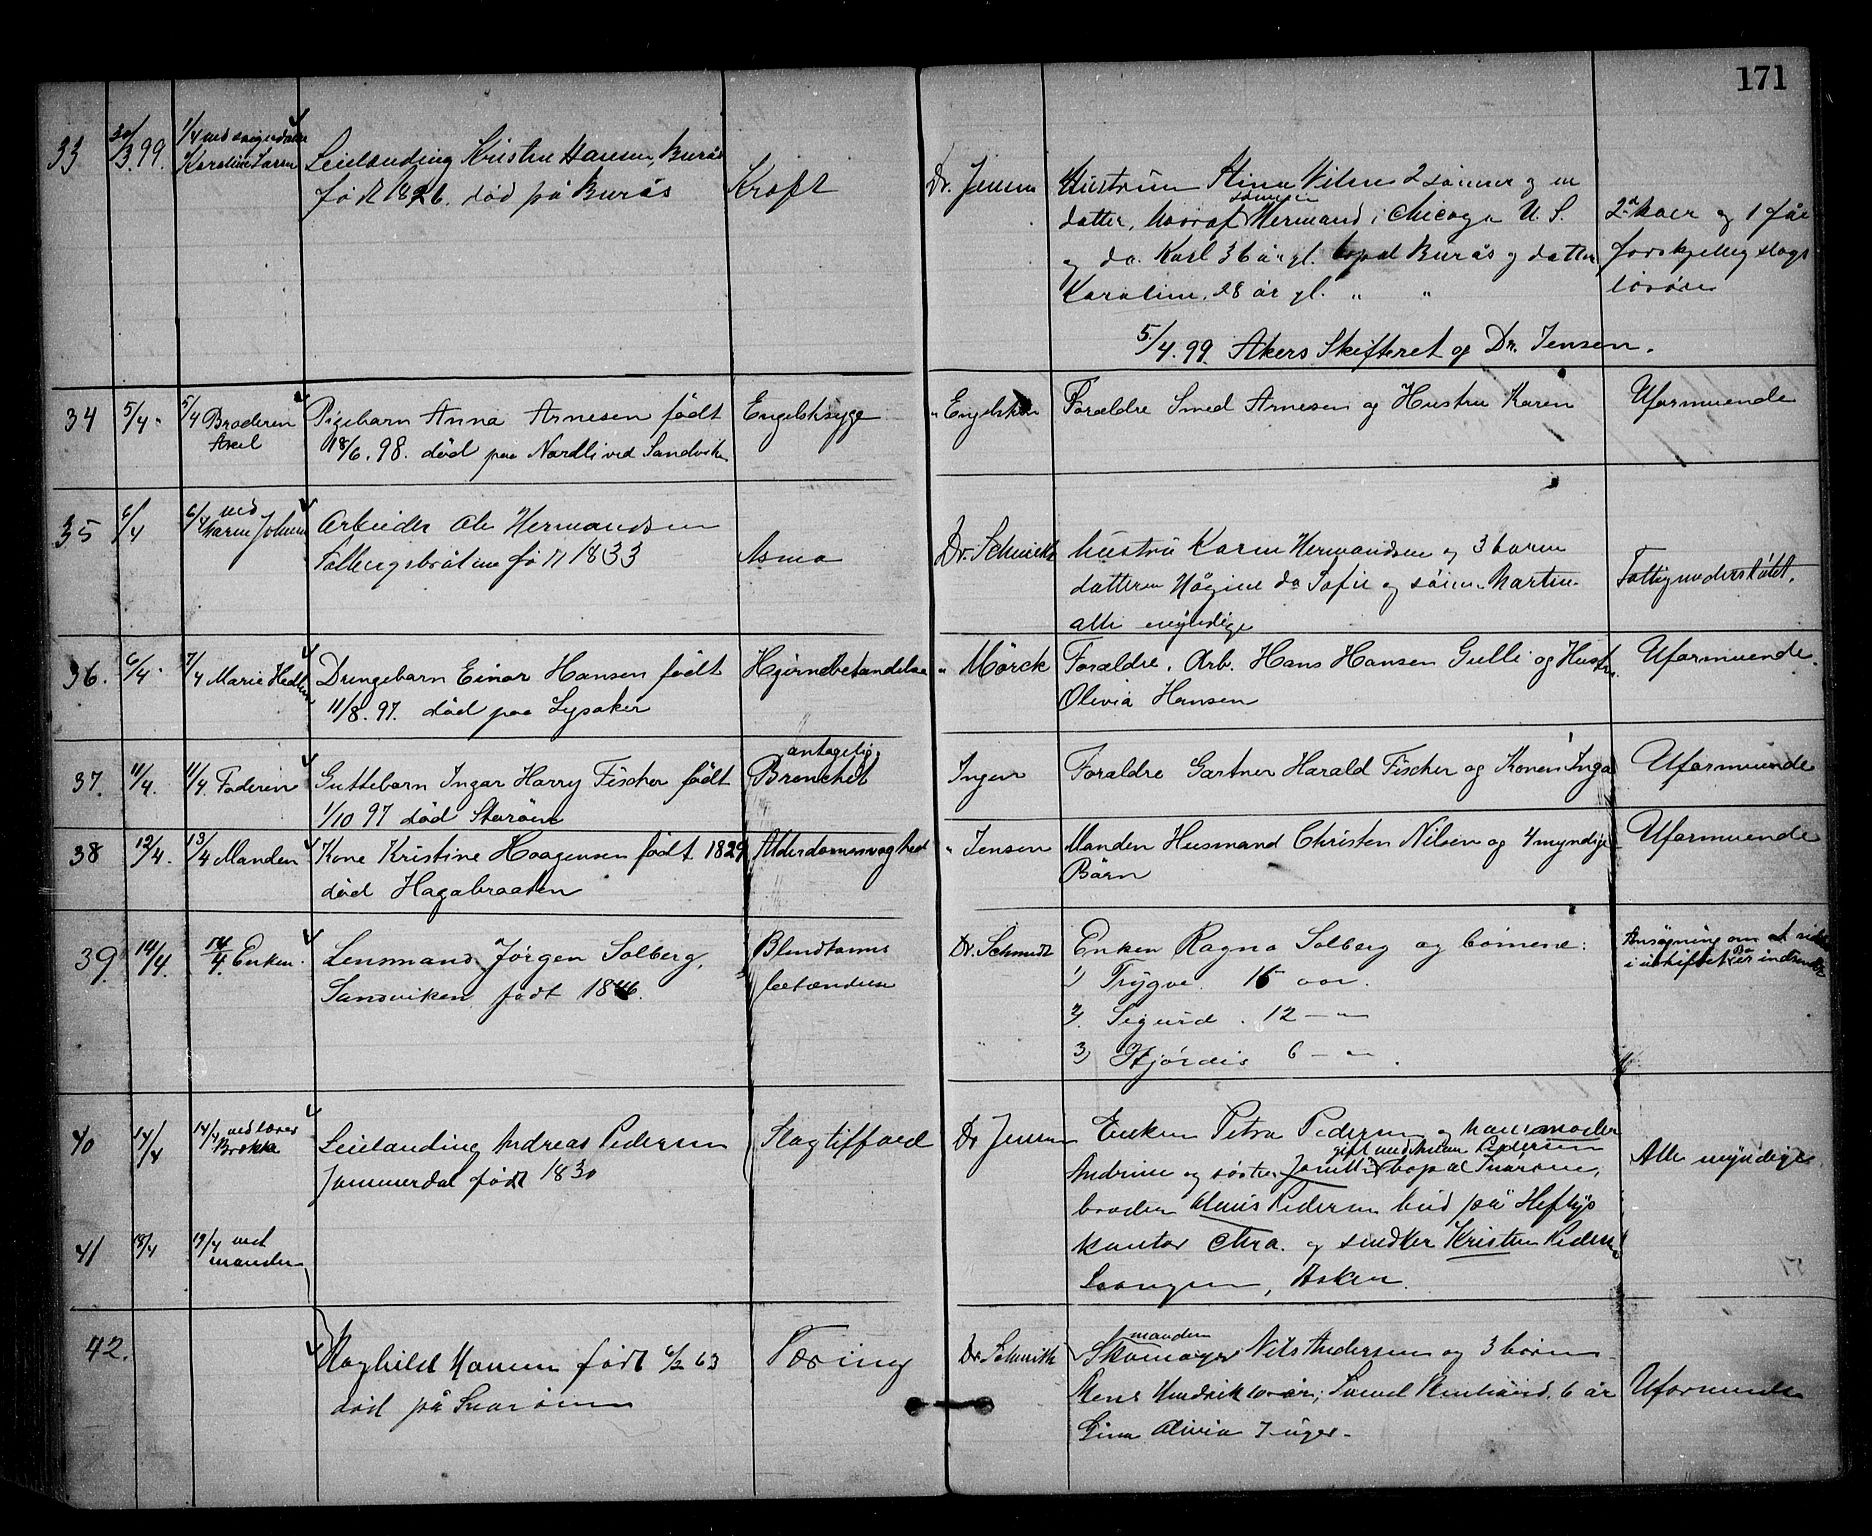 171
33 30/3.99. 1/4 ved
Karoline Leilænding Kristen Hansen, Burås Dr. Jensen Hustrun Stina Nilsen 2 sönner og en
født 1826. død på Burås Kræft datter, hvoraf sønnen Hermand i Chicago U. S. 2 kuer og 1 får
og do. Karl 36 år gl. bopæl Burås og datter forskjellig slags
Karoline, 28 år gl. " " løsøre
5/4.99. Akers Skifteret og Dr. Jensen.
34 5/4. 5/4 Broderen Pigebarn Anna Arnesen født Engelsksyge " Forældre Smed Arnesen og Hustru Karen Uformuende
Axel 18/6.98. død paa Nordli ved Sandviken
35 6/4 6/4 ved Arbeider Ole Hermandsen
Johnsen født 1833 Asma Dr. Schmidt hustru Karen Hermandsen og 3 barn
datteren Hågine do Sofie og sønnen Martin Fattigunderstøttet.
alle myndige
36. 6/4. 7/4 Marie Drengebarn Einar Hansen født Hjernebetændelse " Mörck Forældre. Arb. Hans Hansen Gulli og Hustru Uformuende.
11/8.97. død paa Lysaker Olivia Hansen
37. 11/4. 11/4 Faderen Guttebarn Ingar Harry Fischer født antagelig Bronchit Ingen Forældre Gartner Harald Fischer og Konen Inga Uformuende
1/10 97 død
38 12/4. 13/4 Manden Kone Kristine Haagensen født 1829 Alderdomssvaghed " Jensen Manden Husmand Christen Nilsen og 4 myndige Uformuende
død Hagabraaten Börn
39. 14/4. 14/4. Enken. Lensmand Jörgen Solberg, Blindtarms Dr. Schmidt Enken Ragna Solberg og börnene: Ansögning om at sidde
Sandviken født 1846. betændelse 1) Trygve. 15 aar. i uskiftet Bo er indsendt
2). Sigurd. 12 — "
3) Hjördis 6 — " .
40 14/4 14/4 ved
Brokke Leilænding Andreas Pedersen Slagtilfæld Dr Jensen Enken Petra Pedersen og hans moder
Jammerdal født 1830 gift med Pedersen
Andrine og søster bopæl Snarøen, Alle myndige.
broder Pedersen bud på Heftys
41 18/4 19/4 ved kontor Chra. og snedker Kristen Pedersen
manden Asker.
42. Raghild Hansen født 6/2 63 Tæring Dr Schmidt manden
Skomager Nils Andersen og 3 børn
død på Snarøen Hendrik 10 år, 6 år Uformuende
Olivia 7 uger.